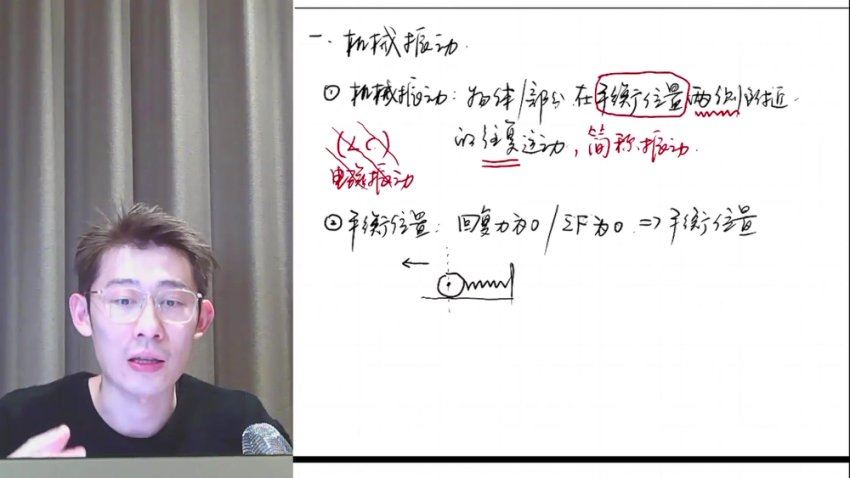 一. 机械振动.
⊙ 机械振动: 物体/部分 在平衡位置 两侧附近
的往复运动, 简称振动.
(LC)
电磁振动
⊙ 平衡位置: 回复力为0 / ΣF为0 => 平衡位置